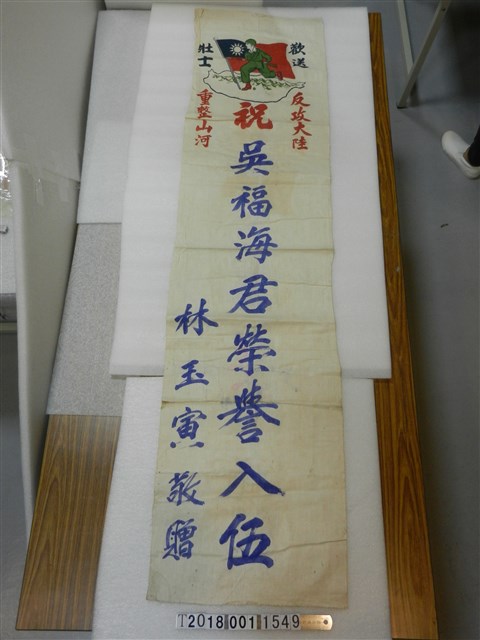 歡送
壯士
反攻大陸
重整山河
祝
吳福海君榮譽入伍
林玉寅敬贈
T2018 001 1549